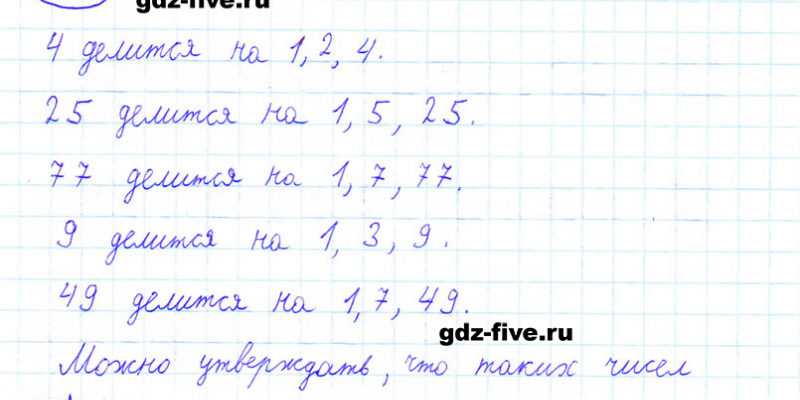 gdz-five.ru
4 делится на 1, 2, 4.
25 делится на 1, 5, 25.
77 делится на 1, 7, 77.
9 делится на 1, 3, 9.
49 делится на 1, 7, 49.
gdz-five.ru
Можно утверждать, что таких чисел